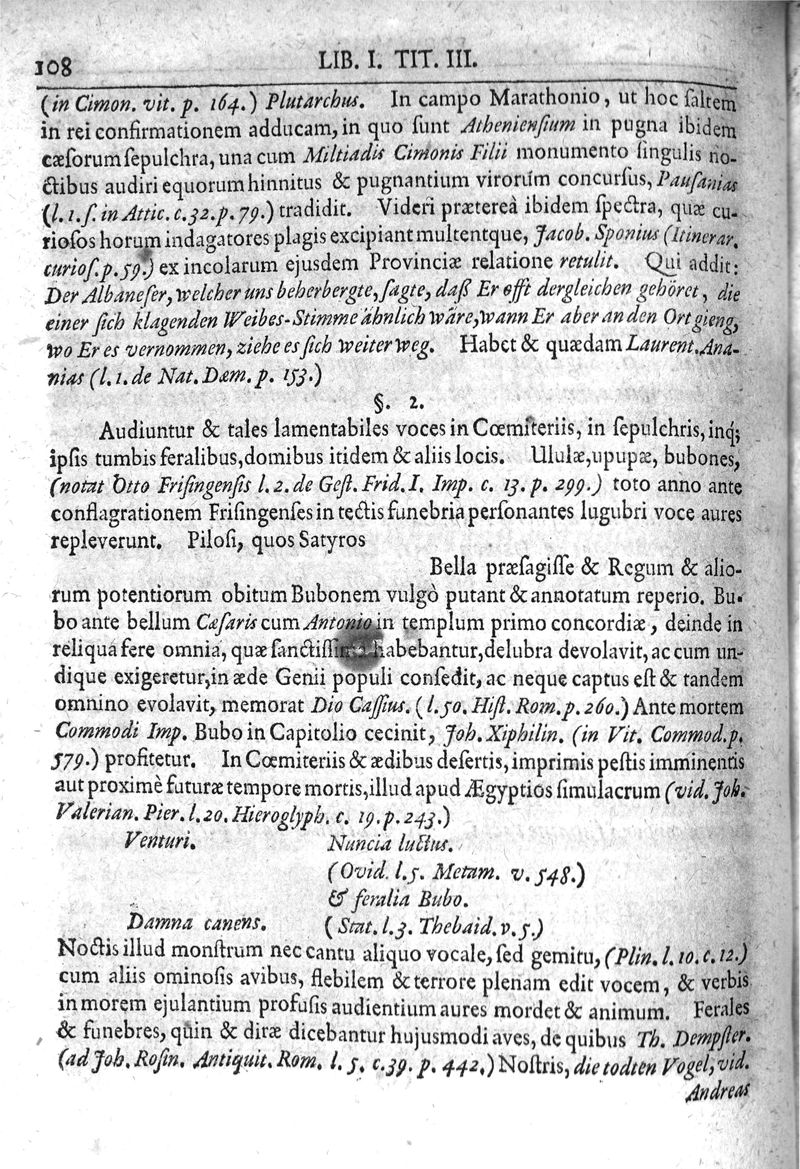 108
LIB. I. TIT. III.
(in Cimon. vit. p. 164.) Plutarchus. In campo Marathonio, ut hoc ſaltem
in rei confirmationem adducam, in quo ſunt Athenienſium in pugna ibidem
cæſorum ſepulchra, una cum Miltiadis Cimonis Filii monumento ſingulis no-
ctibus audiri equorum hinnitus & pugnantium virorúm concurſus, Pauſanias
(l. 1. ſ. in Attic. c. 32. p. 79.) tradidit. Videri prætereà ibidem ſpectra, quæ cu-
rioſos horum indagatores plagis excipiant multentque, Jacob. Sponius (Itinerar.
curioſ. p. 59.) ex incolarum ejusdem Provinciæ relatione retulit. Qui addit:
Der Albaneſer, welcher uns beherbergte, ſagte, daß Er offt dergleichen gehöret, die
einer ſich klagenden Weibes-Stimme ähnlich wäre, wann Er aber an den Ort gieng,
wo Er es vernommen, ziehe es ſich weiter weg. Habet & quædam Laurent. Ana-
nias (l. 1. de Nat. Dæm. p. 153.)
§. 2.
Audiuntur & tales lamentabiles voces in Cœmiteriis, in ſepulchris, inq;
ipſis tumbis feralibus, domibus itidem & aliis locis. Ululæ, upupæ, bubones,
(notat Otto Friſingenſis l. 2. de Geſt. Frid. I. Imp. c. 13. p. 299.) toto anno ante
conflagrationem Friſingenſes in tectis funebria perſonantes lugubri voce aures
repleverunt. Piloſi, quos Satyros
Bella præſagiſſe & Regum & alio-
rum potentiorum obitum Bubonem vulgò putant & annotatum reperio. Bu-
bo ante bellum Cæſaris cum Antonio in templum primo concordiæ, deinde in
reliqua fere omnia, quæ ſanctiſſima habebantur, delubra devolavit, ac cum un-
dique exigeretur, in æde Genii populi conſedit, ac neque captus eſt & tandem
omnino evolavit, memorat Dio Caſſius. (l. 50. Hiſt. Rom. p. 260.) Ante mortem
Commodi Imp. Bubo in Capitolio cecinit, Joh. Xiphilin. (in Vit. Commod. p.
579.) profitetur. In Cœmiteriis & ædibus deſertis, imprimis peſtis imminentis
aut proximè futuræ tempore mortis, illud apud Ægyptios ſimulacrum (vid. Joh.
Valerian. Pier. l. 20. Hieroglyph. c. 19. p. 243.)
Venturi. Nuncia luctus.
(Ovid. l. 5. Metam. v. 548.)
& feralia Bubo.
Damna canens. (Stat. l. 3. Thebaid. v. 5.)
Noctis illud monſtrum nec cantu aliquo vocale, ſed gemitu, (Plin. l. 10. c. 12.)
cum aliis ominoſis avibus, flebilem & terrore plenam edit vocem, & verbis
in morem ejulantium profuſis audientium aures mordet & animum. Ferales
& funebres, quin & diræ dicebantur hujusmodi aves, de quibus Th. Dempſter.
(ad Joh. Roſin. Antiquit. Rom. l. 5. c. 39. p. 442.) Noſtris, die todten Vogel, vid.
Andreas